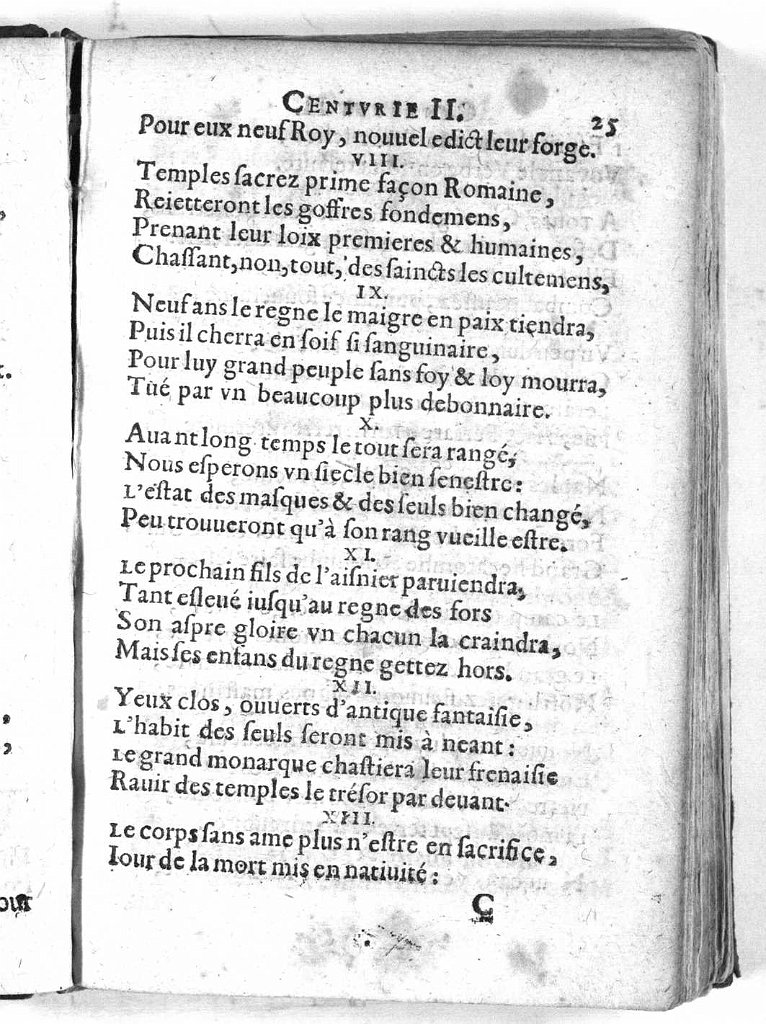 CENTVRIE II.
25
Pour eux neuf Roy, nouuel edict leur forge.
VIII.
Temples ſacrez prime façon Romaine,
Reietteront les goffres fondemens,
Prenant leur loix premieres & humaines,
Chaſſant, non, tout, des ſaincts les cultemens,
IX.
Neuf ans le regne le maigre en paix tiendra,
Puis il cherra en ſoif ſi ſanguinaire,
Pour luy grand peuple ſans foy & loy mourra,
Tué par vn beaucoup plus debonnaire.
X.
Auant long temps le tout ſera rangé,
Nous eſperons vn ſiecle bien ſeneſtre:
L'eſtat des maſques & des ſeuls bien changé,
Peu trouueront qu'à ſon rang vueille eſtre.
XI.
Le prochain fils de l'aiſnier paruiendra,
Tant eſleué iuſqu'au regne des fors
Son aſpre gloire vn chacun la craindra,
Mais ſes enfans du regne gettez hors.
XII.
Yeux clos, ouuerts d'antique fantaiſie,
L'habit des ſeuls ſeront mis à neant:
Le grand monarque chaſtiera leur frenaiſie
Rauir des temples le tréſor par deuant.
XIII.
Le corps ſans ame plus n'eſtre en ſacrifice,
Iour de la mort mis en natiuité:
C